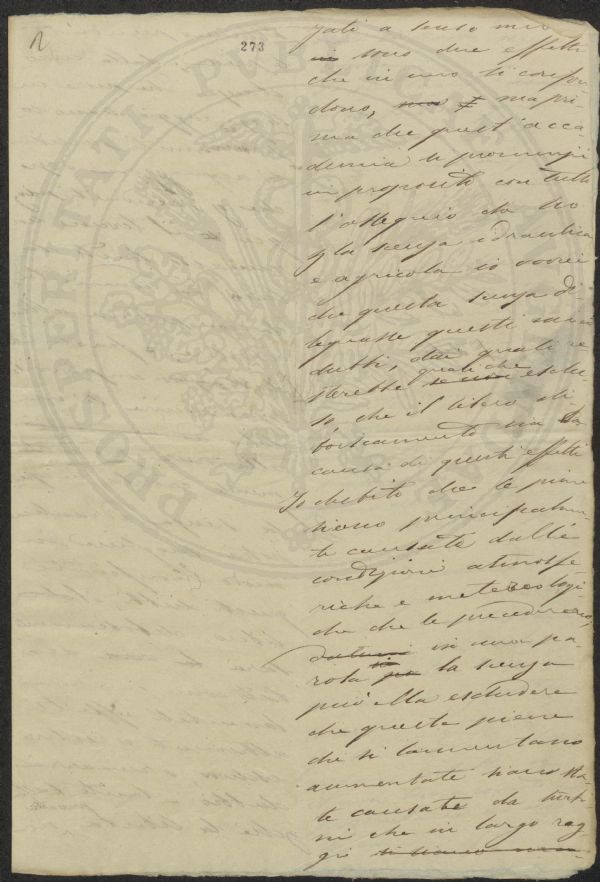 2
273
gati a senso mio
sono due effetti
che in uno si confon
dono, ma pri
ma che quest'acca
demia si pronunzi
in proposito con tutto
l'ossequio che ho
la scienza idraulica
e agricola io vorrei
che questa scienza di
leguasse questi miei
dubbi, dai quali re
sterebbe quasi che esclu
so, che il libero di
boscamento sia la
causa di questi effetti
Io dubito che le piene
siano principalmen
te causate dalle
condizioni atmosfe
riche e meteorologi
che che le precedereno,
in una pa
rola la scienza
può ella escludere
che queste piene
che si lamentano
aumentate siano sta
te causate da turbi
ni che in largo rag
gi
PROSPERITATI PUBLICAE AU